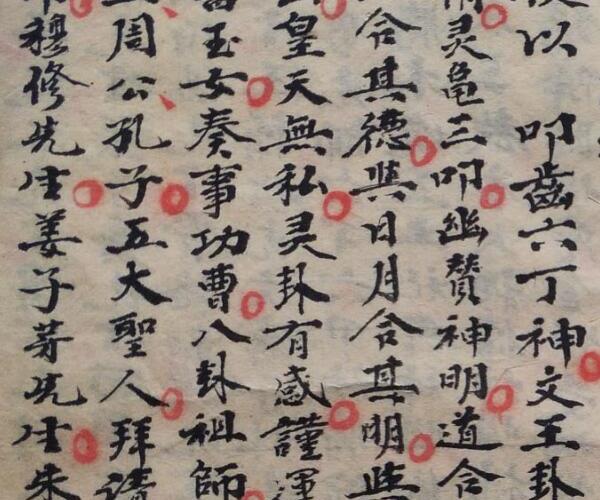 以 叩齒六丁神文王卦
灵亀三叩幽賛神明道合
合其德與日月合其明與
皇天無私灵卦有感謹運
玉女奏事功曹八卦祖師
周公孔子五大聖人拜請
穆修先生姜子芽先生朱